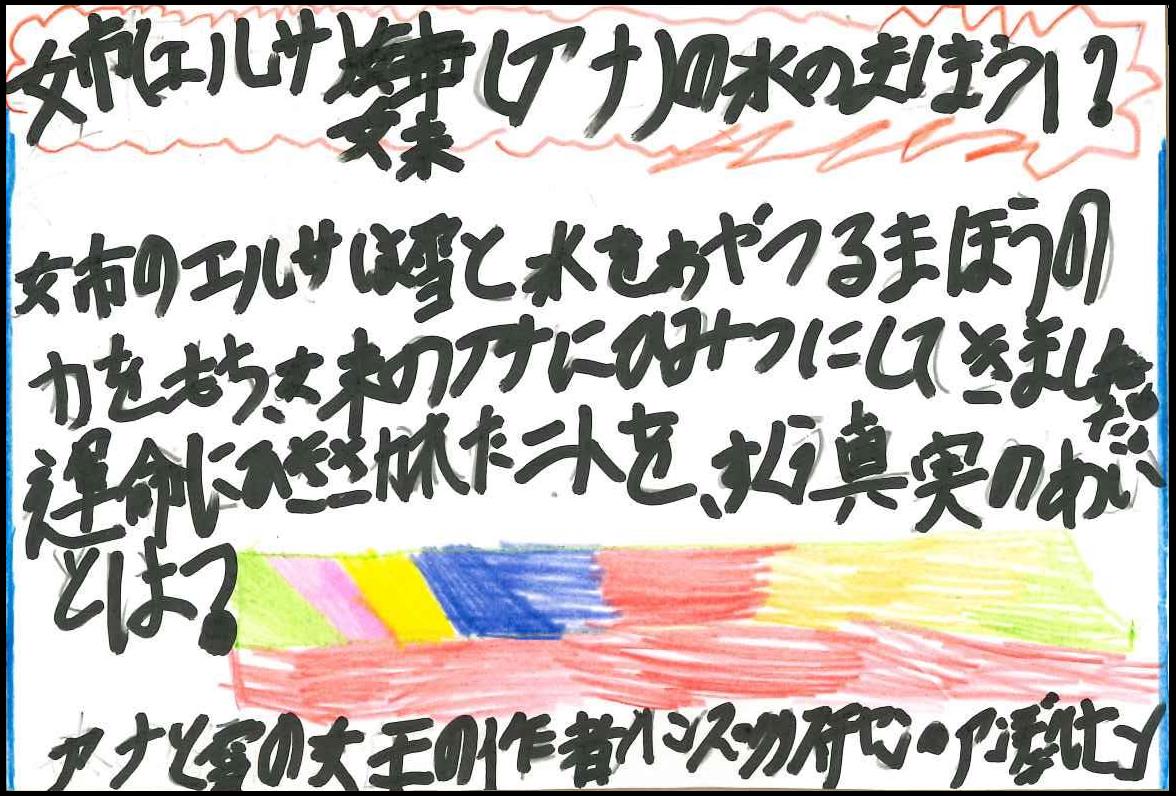 姉(エルサ 妹(アナ)の水のまほう!?
姉のエルサは雪と水をあやつるまほうの
力をもち、妹のアナにひみつにしてきました。
運命にひきさかれた二人を、すくう真実のあい
とは?
アナと雪の女王の作者ハンス・アンデルセン